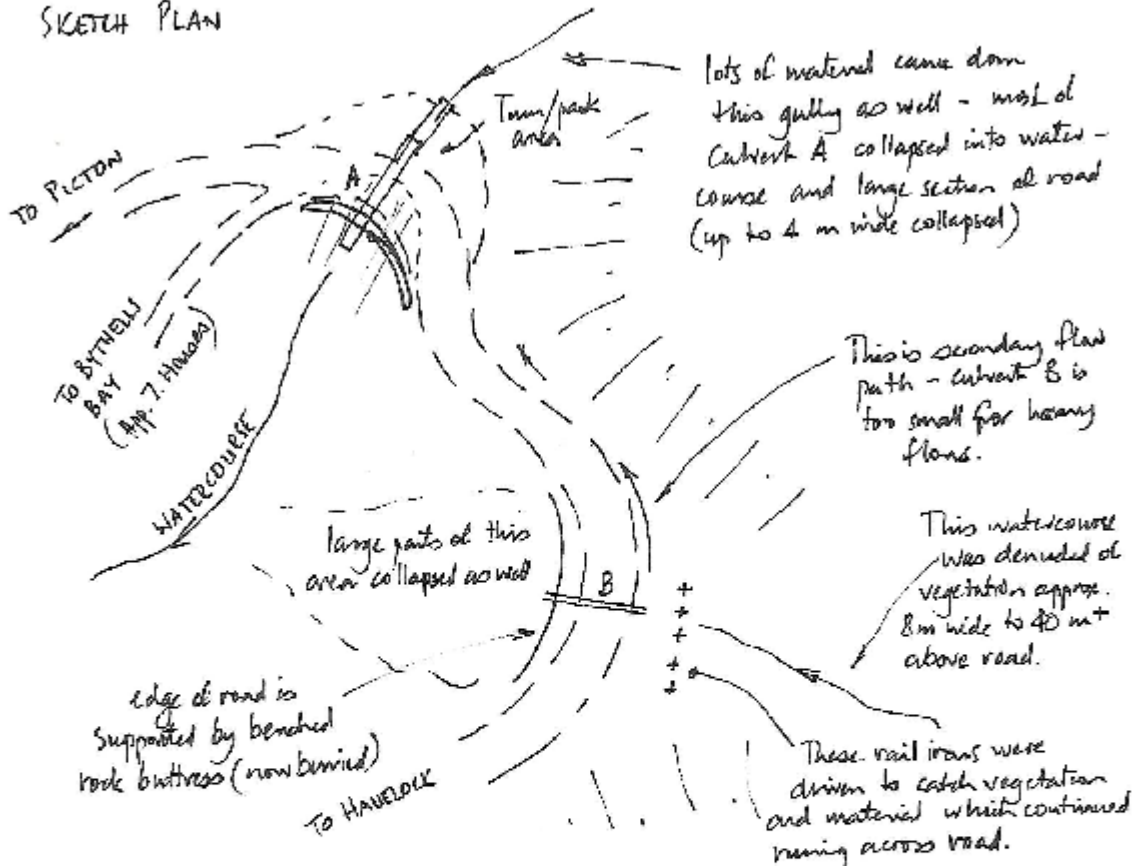 SKETCH PLAN
lots of material came down
this gulley as well - most of
Culvert A collapsed into water-
course and large section of road
(up to 4 m wide collapsed)
Turn/park
area
A
TO PICTON
TO BYTHELLS
BAY
(App. 7. Houses)
WATERCOURSE
This is secondary flow
path - culvert B is
too small for heavy
flows.
large parts of this
area collapsed as well
B
This watercourse
was denuded of
vegetation approx.
8m wide to 40 m+
above road.
edge of road is
supported by benched
rock buttress (now buried)
TO HAVELOCK
These rail irons were
driven to catch vegetation
and material which continued
running across road.